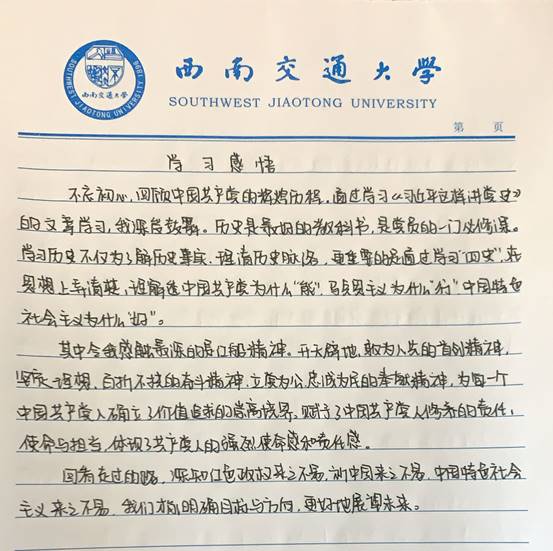 西南交通大学
SOUTHWEST JIAOTONG UNIVERSITY
第 页
学习感悟
不忘初心,回顾中国共产党的辉煌历程,通过学习《习近平这样讲党史》
的文章学习,我深受鼓舞。历史是最好的教科书,是党员的一门必修课。
学习历史不仅为了解历史事实、理清历史脉络,更重要的是通过学习“四史”,在
思想上弄清楚、理解透中国共产党为什么“能”,马克思主义为什么“行”中国特色
社会主义为什么“好”。
其中令我感触最深的是红船精神。开天辟地,敢为人先的首创精神,
坚定理想、百折不挠的奋斗精神,立党为公,忠诚为民的奉献精神,为每一个
中国共产党人确立了价值追求的崇高境界,赋予了中国共产党人修养的责任,
使命与担当,体现了共产党人的强烈使命感和责任感。
回看走过的路,深知红色政权来之不易,新中国来之不易,中国特色社会
主义来之不易,我们才能明确目标与方向,更好地展望未来。